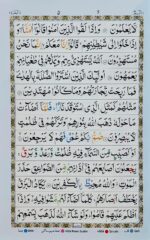 لَا يَعْلَمُونَ وَإِذَا لَقُوا الَّذِينَ اٰمَنُوا قَالُوا اٰمَنَّا وَ
إِذَا خَلَوْا إِلٰى شَيٰطِينِهِمْ قَالُوا إِنَّا مَعَكُمْ إِنَّمَا نَحْنُ
مُسْتَهْزِءُونَ اللّٰهُ يَسْتَهْزِئُ بِهِمْ وَيَمُدُّهُمْ فِي طُغْيَانِهِمْ
يَعْمَهُونَ أُولٰئِكَ الَّذِينَ اشْتَرَوُا الضَّلٰلَةَ بِالْهُدٰى
فَمَا رَبِحَتْ تِجَارَتُهُمْ وَمَا كَانُوا مُهْتَدِينَ
مَثَلُهُمْ كَمَثَلِ الَّذِي اسْتَوْقَدَ نَارًا فَلَمَّا أَضَاءَتْ مَا
حَوْلَهُ ذَهَبَ اللّٰهُ بِنُورِهِمْ وَتَرَكَهُمْ فِي ظُلُمٰتٍ
لَا يُبْصِرُونَ صُمٌّ بُكْمٌ عُمْيٌ فَهُمْ لَا يَرْجِعُونَ
أَوْ كَصَيِّبٍ مِنَ السَّمَاءِ فِيهِ ظُلُمٰتٌ وَرَعْدٌ وَبَرْقٌ
يَجْعَلُونَ أَصَابِعَهُمْ فِي اٰذَانِهِمْ مِنَ الصَّوَاعِقِ حَذَرَ
الْمَوْتِ وَاللّٰهُ مُحِيطٌ بِالْكٰفِرِينَ يَكَادُ الْبَرْقُ
يَخْطَفُ أَبْصَارَهُمْ كُلَّمَا أَضَاءَ لَهُمْ مَشَوْا فِيهِ وَإِذَا
أَظْلَمَ عَلَيْهِمْ قَامُوا وَلَوْ شَاءَ اللّٰهُ لَذَهَبَ بِسَمْعِهِمْ